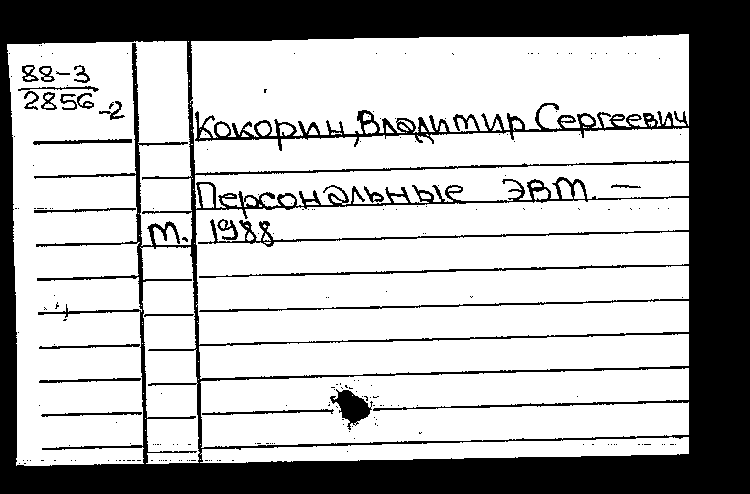 88-3
2856-2
Кокорин, Владимир Сергеевич
Персональные ЭВМ. —
М. 1988